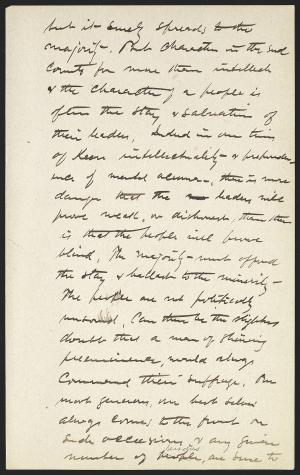 but it surely spreads to the
majority. But character in the end
counts for more than intellect
& the character of a people is
often the stay & salvation of
their leaders. Indeed in our time
of keen intellectuality & preponder-
ance of mental acumen, there is more
danger that the leaders will
prove weak, or dishonest, than there
is that the people will prove
blind. The majority must afford
the stay & ballast to the minority.
The people are not politically
unsound. Can there be the slightest
doubt that a man of shining
preeminence, would always
command their suffrage. Our
most generous, our best selves
always comes to the front on
such occasions, & any given
number of people, are sure to